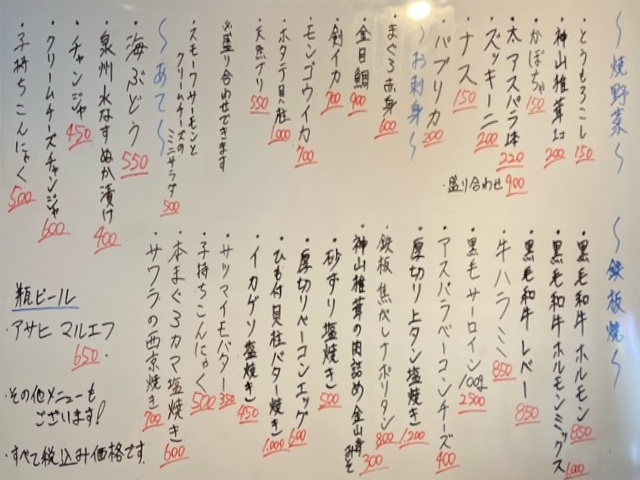 〜焼野菜〜
・とうもろこし 150
・神山椎茸1コ 200
・かぼちゃ 150
・太アスパラ1本 220
・ズッキーニ 200
・ナス 150
・パプリカ 200
・盛り合わせ 900
〜お刺身〜
・まぐろ赤身 600
・金目鯛 900
・剣イカ 700
・モンゴウイカ 700
・ホタテ貝柱 1000
・天然ブリ 550
※盛り合わせできます
〜あて〜
・スモークサーモンと
クリームチーズの
ミニサラダ 500
・海ぶどう 550
・泉州水なすぬか漬け 400
・チャンジャ 450
・クリームチーズチャンジャ 600
・子持ちこんにゃく 500
〜鉄板焼〜
・黒毛和牛ホルモン 850
・黒毛和牛ホルモンミックス 1000
・黒毛和牛レバー 850
・牛ハラミ 850
・黒毛サーロイン100g 2500
・アスパラベーコンチーズ 400
・厚切り上タン塩焼き 1,200
・鉄板焦がしナポリタン 800
・神山椎茸の肉詰め 金山寺みそ 300
・砂ずり塩焼き 500
・厚切りベーコンエッグ 600
・ひも付貝柱バター焼き 1,000
・イカゲソ塩焼き 450
・サツマイモバター 350
・子持ちこんにゃく 500
・本まぐろカマ塩焼き 600
・サワラの西京焼き 700
瓶ビール
・アサヒ マルエフ 650.
・その他メニューも
ございます!
・すべて税込み価格です.